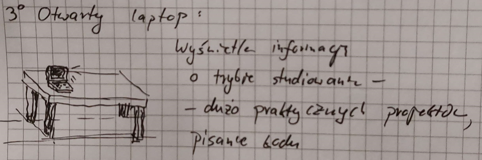 3° Otwarty laptop:
Wyświetla informacje
o trybie studiowania –
– dużo praktycznych projektów,
pisanie kodu